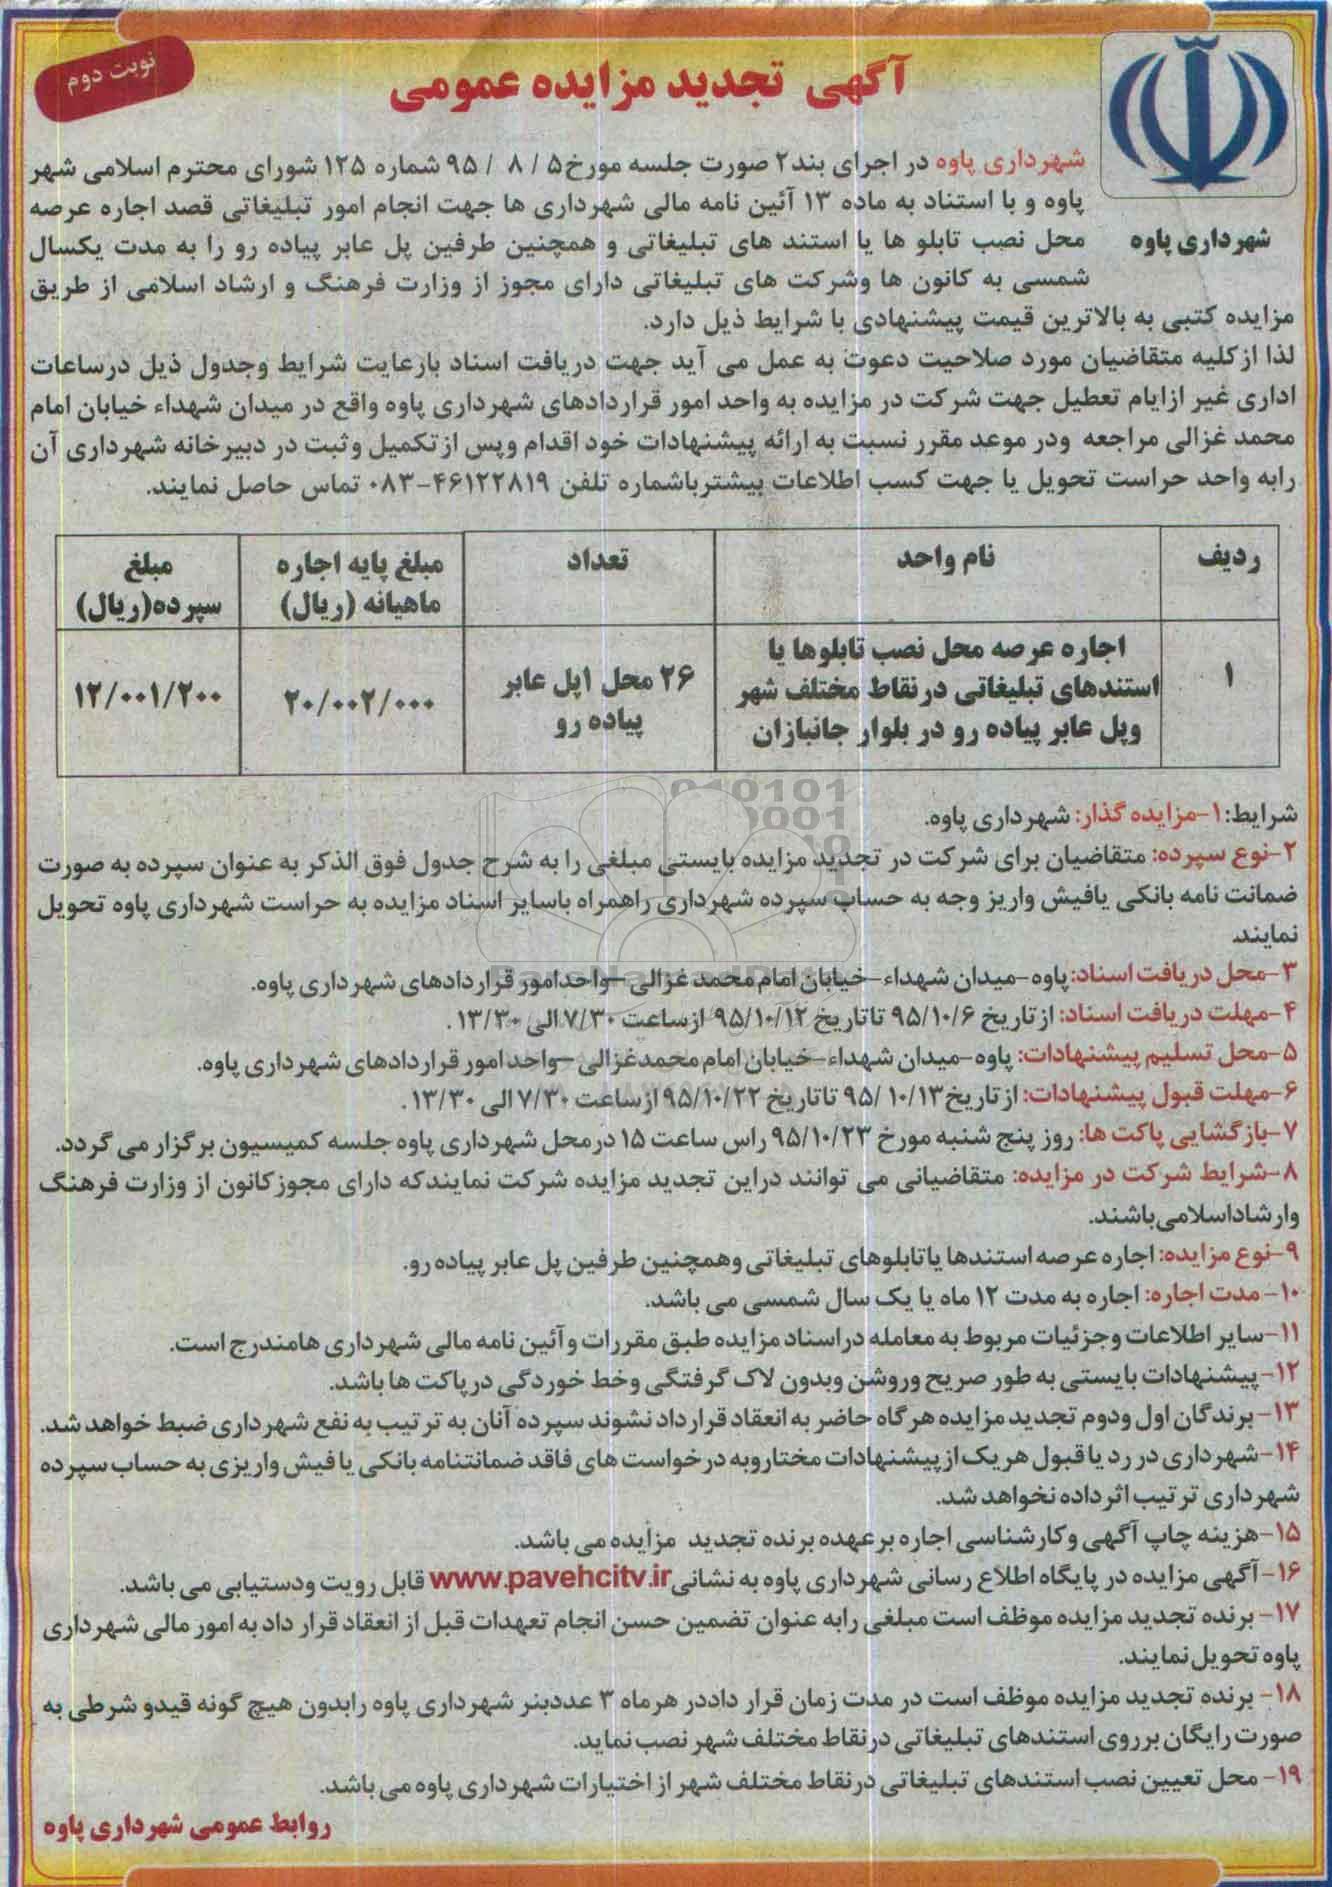 نوبت دوم
آگهی تجدید مزایده عمومی
شهرداری پاوه
شهرداری پاوه در اجرای بند۲ صورت جلسه مورخ۵ / ۸ / ۹۵ شماره ۱۲۵ شورای محترم اسلامی شهر
پاوه و با استناد به ماده ۱۳ آئین نامه مالی شهرداری ها جهت انجام امور تبلیغاتی قصد اجاره عرصه
محل نصب تابلو ها یا استند های تبلیغاتی و همچنین طرفین پل عابر پیاده رو را به مدت یکسال
شمسی به کانون ها وشرکت های تبلیغاتی دارای مجوز از وزارت فرهنگ و ارشاد اسلامی از طریق
مزایده کتبی به بالاترین قیمت پیشنهادی با شرایط ذیل دارد.
لذا ازکلیه متقاضیان مورد صلاحیت دعوت به عمل می آید جهت دریافت اسناد بارعایت شرایط وجدول ذیل درساعات
اداری غیر ازایام تعطیل جهت شرکت در مزایده به واحد امور قراردادهای شهرداری پاوه واقع در میدان شهداء خیابان امام
محمد غزالی مراجعه ودر موعد مقرر نسبت به ارائه پیشنهادات خود اقدام وپس ازتکمیل وثبت در دبیرخانه شهرداری آن
رابه واحد حراست تحویل یا جهت کسب اطلاعات بیشترباشماره تلفن ۴۶۱۲۲۸۱۹-۰۸۳ تماس حاصل نمایند.
ردیف
نام واحد
تعداد
مبلغ پایه اجاره
ماهیانه (ریال)
مبلغ
سپرده(ریال)
۱
اجاره عرصه محل نصب تابلوها یا
استندهای تبلیغاتی درنقاط مختلف شهر
وپل عابر پیاده رو در بلوار جانبازان
۲۶ محل ۱پل عابر
پیاده رو
۲۰/۰۰۲/۰۰۰
۱۲/۰۰۱/۲۰۰
شرایط:۱-مزایده گذار: شهرداری پاوه.
۲-نوع سپرده: متقاضیان برای شرکت در تجدید مزایده بایستی مبلغی را به شرح جدول فوق الذکر به عنوان سپرده به صورت
ضمانت نامه بانکی یافیش واریز وجه به حساب سپرده شهرداری راهمراه باسایر اسناد مزایده به حراست شهرداری پاوه تحویل
نمایند.
۳-محل دریافت اسناد: پاوه-میدان شهداء-خیابان امام محمد غزالی -واحدامور قراردادهای شهرداری پاوه.
۴-مهلت دریافت اسناد: ازتاریخ ۹۵/۱۰/۶ تاتاریخ ۹۵/۱۰/۱۲ ازساعت ۷/۳۰الی ۱۳/۳۰.
۵-محل تسلیم پیشنهادات: پاوه-میدان شهداء-خیابان امام محمدغزالی -واحد امور قراردادهای شهرداری پاوه.
۶-مهلت قبول پیشنهادات: ازتاریخ۱۰/۱۳ /۹۵ تاتاریخ ۹۵/۱۰/۲۲ ازساعت ۷/۳۰ الی ۱۳/۳۰.
۷-بازگشایی پاکت ها: روز پنج شنبه مورخ ۹۵/۱۰/۲۳ راس ساعت ۱۵ درمحل شهرداری پاوه جلسه کمیسیون برگزار می گردد.
۸-شرایط شرکت در مزایده: متقاضیانی می توانند دراین تجدید مزایده شرکت نمایندکه دارای مجوزکانون از وزارت فرهنگ
وارشاداسلامی‌باشند.
۹-نوع مزایده: اجاره عرصه استندها یاتابلوهای تبلیغاتی وهمچنین طرفین پل عابر پیاده رو.
۱۰- مدت اجاره: اجاره به مدت ۱۲ ماه یا یک سال شمسی می باشد.
۱۱-سایر اطلاعات وجزئیات مربوط به معامله دراسناد مزایده طبق مقررات و آئین نامه مالی شهرداری هامندرج است.
۱۲-پیشنهادات بایستی به طور صریح وروشن وبدون لاک گرفتگی وخط خوردگی درپاکت ها باشد.
۱۳- برندگان اول ودوم تجدید مزایده هرگاه حاضر به انعقاد قرارداد نشوند سپرده آنان به ترتیب به نفع شهرداری ضبط خواهد شد.
۱۴-شهرداری در رد یا قبول هریک ازپیشنهادات مختاروبه درخواست های فاقد ضمانتنامه بانکی یا فیش واریزی به حساب سپرده
شهرداری ترتیب اثرداده نخواهد شد.
۱۵-هزینه چاپ آگهی وکارشناسی اجاره برعهده برنده تجدید مزایده می باشد.
۱۶-آگهی مزایده در پایگاه اطلاع رسانی شهرداری پاوه به نشانی www.pavehcitv.ir قابل رویت ودستیابی می باشد.
۱۷- برنده تجدید مزایده موظف است مبلغی رابه عنوان تضمین حسن انجام تعهدات قبل از انعقاد قرار داد به امور مالی شهرداری
پاوه تحویل‌نمایند.
۱۸- برنده تجدید مزایده موظف است در مدت زمان قرار داددر هرماه ۳ عددبنر شهرداری پاوه رابدون هیچ گونه قیدو شرطی به
صورت رایگان برروی استندهای تبلیغاتی درنقاط مختلف شهر نصب نماید.
۱۹- محل تعیین نصب استندهای تبلیغاتی درنقاط مختلف شهر از اختیارات شهرداری پاوه می باشد.
روابط عمومی شهرداری پاوه